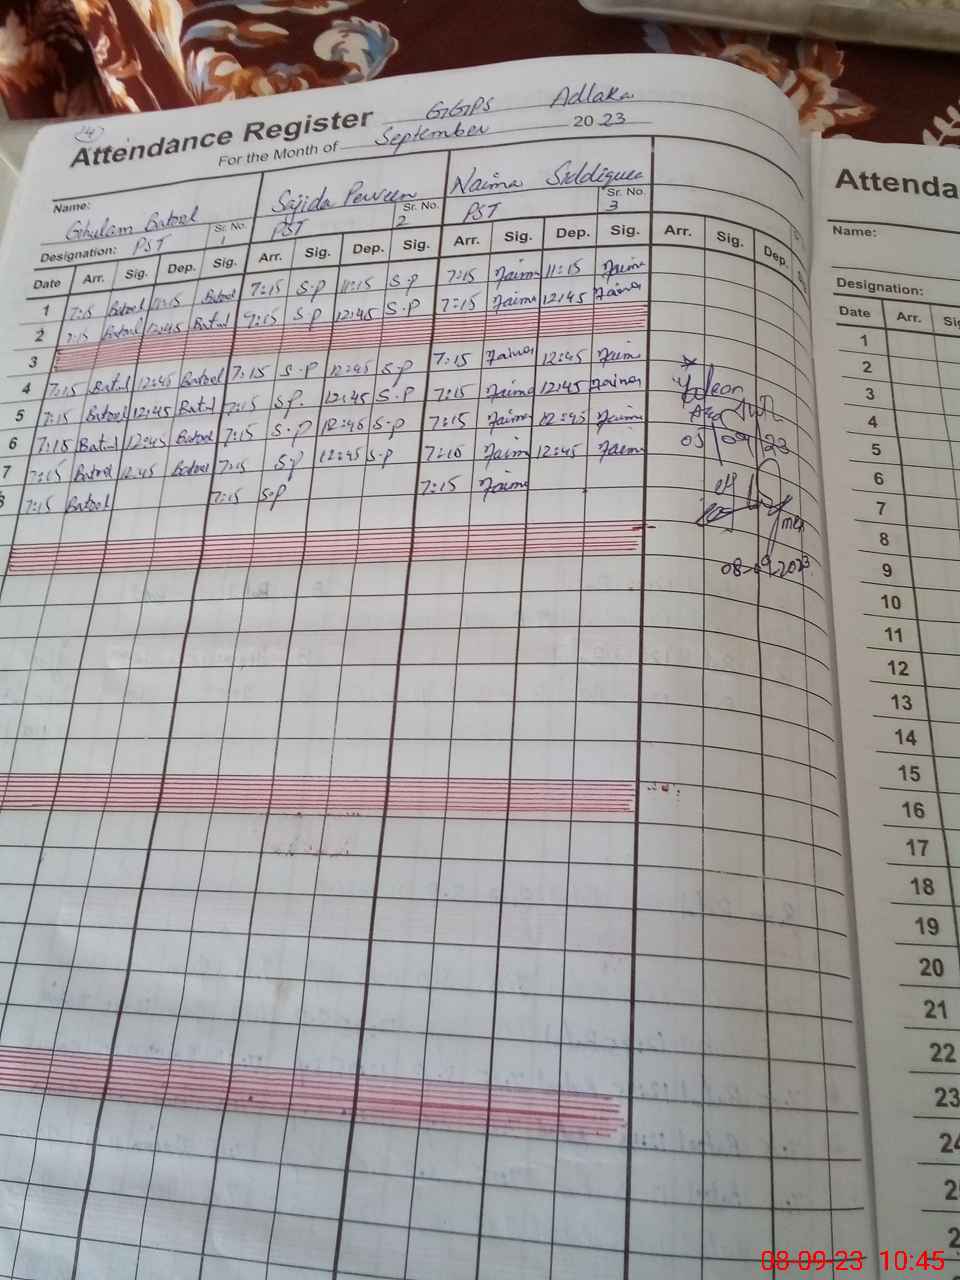 24
Attendance Register GGPS Adlaka
For the Month of September 2023
Name: Ghulam Batool Sajida Perveen Naima Siddiquea
Designation: PST Sr. No. 1 PST Sr. No. 2 PST Sr. No. 3
Date Arr. Sig. Dep. Sig. Arr. Sig. Dep. Sig. Arr. Sig. Dep. Sig. Arr. Sig. Dep.
1 7:15 Batool 11:15 Batool 7:15 S.P 11:15 S.P 7:15 Naima 11:15 Naima
2 7:15 Batool 12:45 Batool 7:15 S.P 12:45 S.P 7:15 Naima 12:45 Naima
3
4 7:15 Batool 12:45 Batool 7:15 S.P 12:45 S.P 7:15 Naima 12:45 Naima
5 7:15 Batool 12:45 Batool 7:15 S.P. 12:45 S.P 7:15 Naima 12:45 Naima
6 7:15 Batool 12:45 Batool 7:15 S.P 12:45 S.P 7:15 Naima 12:45 Naima
7 7:15 Batool 12:45 Batool 7:15 S.P 12:45 S.P 7:15 Naima 12:45 Naima
8 7:15 Batool 7:15 S.P 7:15 Naima
05/09/23
08-09-2023
Attenda
Name:
Designation:
Date Arr. Si
1
2
3
4
5
6
7
8
9
10
11
12
13
14
15
16
17
18
19
20
21
22
23
24
2
2
08-09-23 10:45